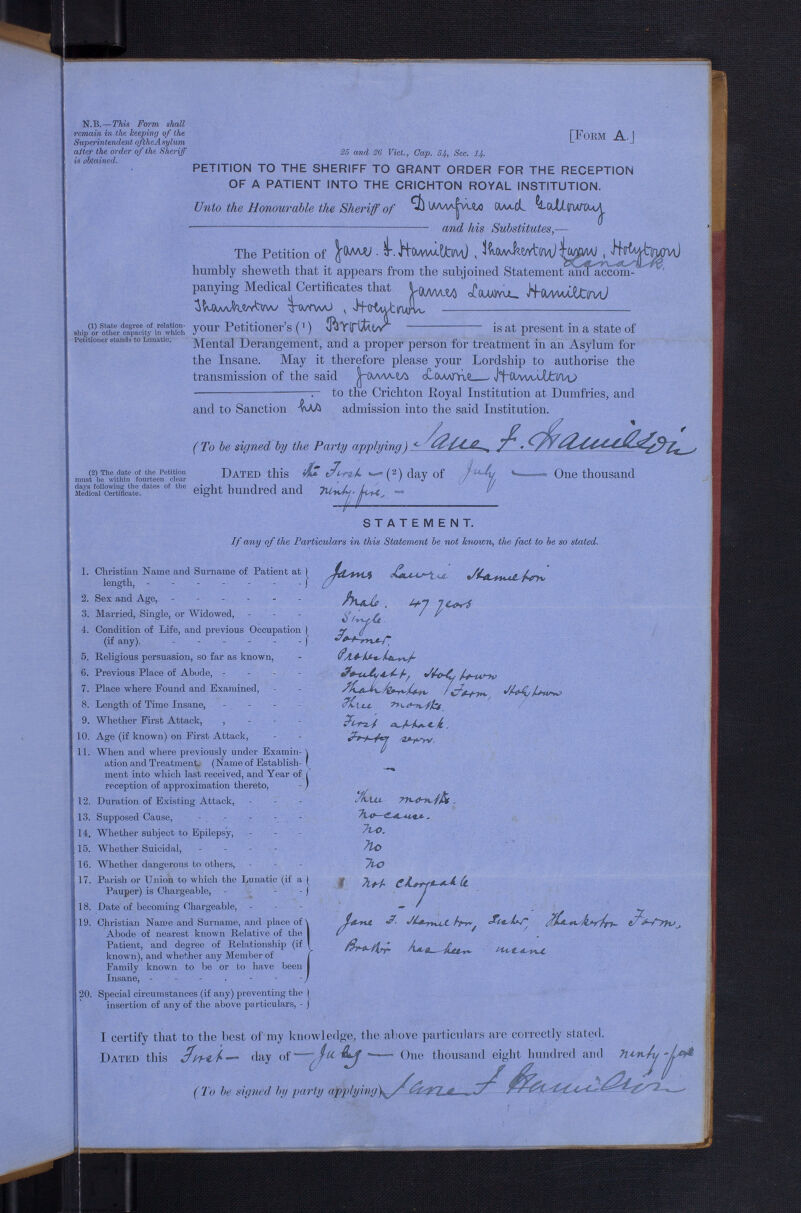 N.B.—This Form shall
remain in the keeping of the
Superintendent of the Asylum
after the order of the Sheriff
is obtained.
[FORM A.]
25 and 26 Vict., Cap. 54, Sec. 14.
PETITION TO THE SHERIFF TO GRANT ORDER FOR THE RECEPTION
OF A PATIENT INTO THE CRICHTON ROYAL INSTITUTION.
Unto the Honourable the Sheriff of Dumfries and Galloway
and his Substitutes,—
The Petition of Jane. F. Hamilton, Thankerton Farm, Holytown
Lanark.
humbly sheweth that it appears from the subjoined Statement and accom-
panying Medical Certificates that James Lawrie Hamilton
Thankerton Farm, Holytown
(1) State degree of relation-
ship or other capacity in which
Petitioner stands to Lunatic.
your Petitioner's (1) Brother is at present in a state of
Mental Derangement, and a proper person for treatment in an Asylum for
the Insane. May it therefore please your Lordship to authorise the
transmission of the said James Lawrie Hamilton
to the Crichton Royal Institution at Dumfries, and
and to Sanction his admission into the said Institution.
(To be signed by the Party applying) Jane F. Hamilton
(2) The date of the Petition
must be within fourteen clear
days following the dates of the
Medical Certificate.
DATED this the First (2) day of July One thousand
eight hundred and ninty-five,
STATEMENT.
If any of the Particulars in this Statement be not known, the fact to be so stated.
1. Christian Name and Surname of Patient at
length, - James Lawrie Hamilton
2. Sex and Age, - Male. 47 years
3. Married, Single, or Widowed, - Single
4. Condition of Life, and previous Occupation
(if any). - Farmer.
5. Religious persuasion, so far as known, - Protestant
6. Previous Place of Abode, - Holytown
7. Place where Found and Examined, - Thankerton Farm, Holytown
8. Length of Time Insane, - Three months.
9. Whether First Attack, - First attack.
10. Age (if known) on First Attack, - Forty seven.
11. When and where previously under Examin-
ation and Treatment. (Name of Establish-
ment into which last received, and Year of
reception of approximation thereto, - —
12. Duration of Existing Attack, - Three months.
13. Supposed Cause, - No cause.
14. Whether subject to Epilepsy, - No.
15. Whether Suicidal, - No
16. Whether dangerous to others, - No
17. Parish or Union to which the Lunatic (if a
Pauper) is Chargeable, - Not Chargeable
18. Date of becoming Chargeable, - –
19. Christian Name and Surname, and place of
Abode of nearest known Relative of the
Patient, and degree of Relationship (if
known), and whether any Member of
Family known to be or to have been
Insane, -
Jane F. Hamilton, Sister, Thankerton Farm,
Brother has been insane
20. Special circumstances (if any) preventing the
insertion of any of the above particulars, -
I certify that to the best of my knowledge, the above particulars are correctly stated.
DATED this First day of July One thousand eight hundred and ninty-five
(To be signed by party applying) Jane F Hamilton